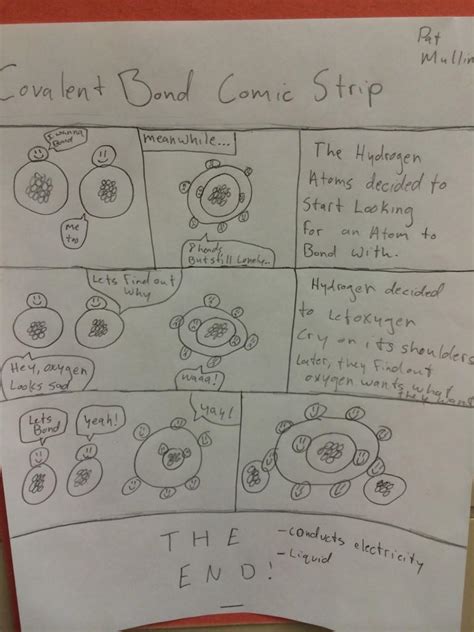 Pat
Mullin
Covalent Bond Comic Strip
I wanna
Bond
Me
too
Meanwhile...
8 hands
But still Lonely...
The Hydrogen
Atoms decided to
Start Looking
for an Atom to
Bond with.
Lets find out
Why
Hey, oxygen
Looks sad
waaa!
Hydrogen decided
to Let oxygen
Cry on its shoulders
Later, they find out
oxygen wants what
they want
Lets
Bond
Yeah!
Yay!
THE
END!
-Conducts electricity
-Liquid